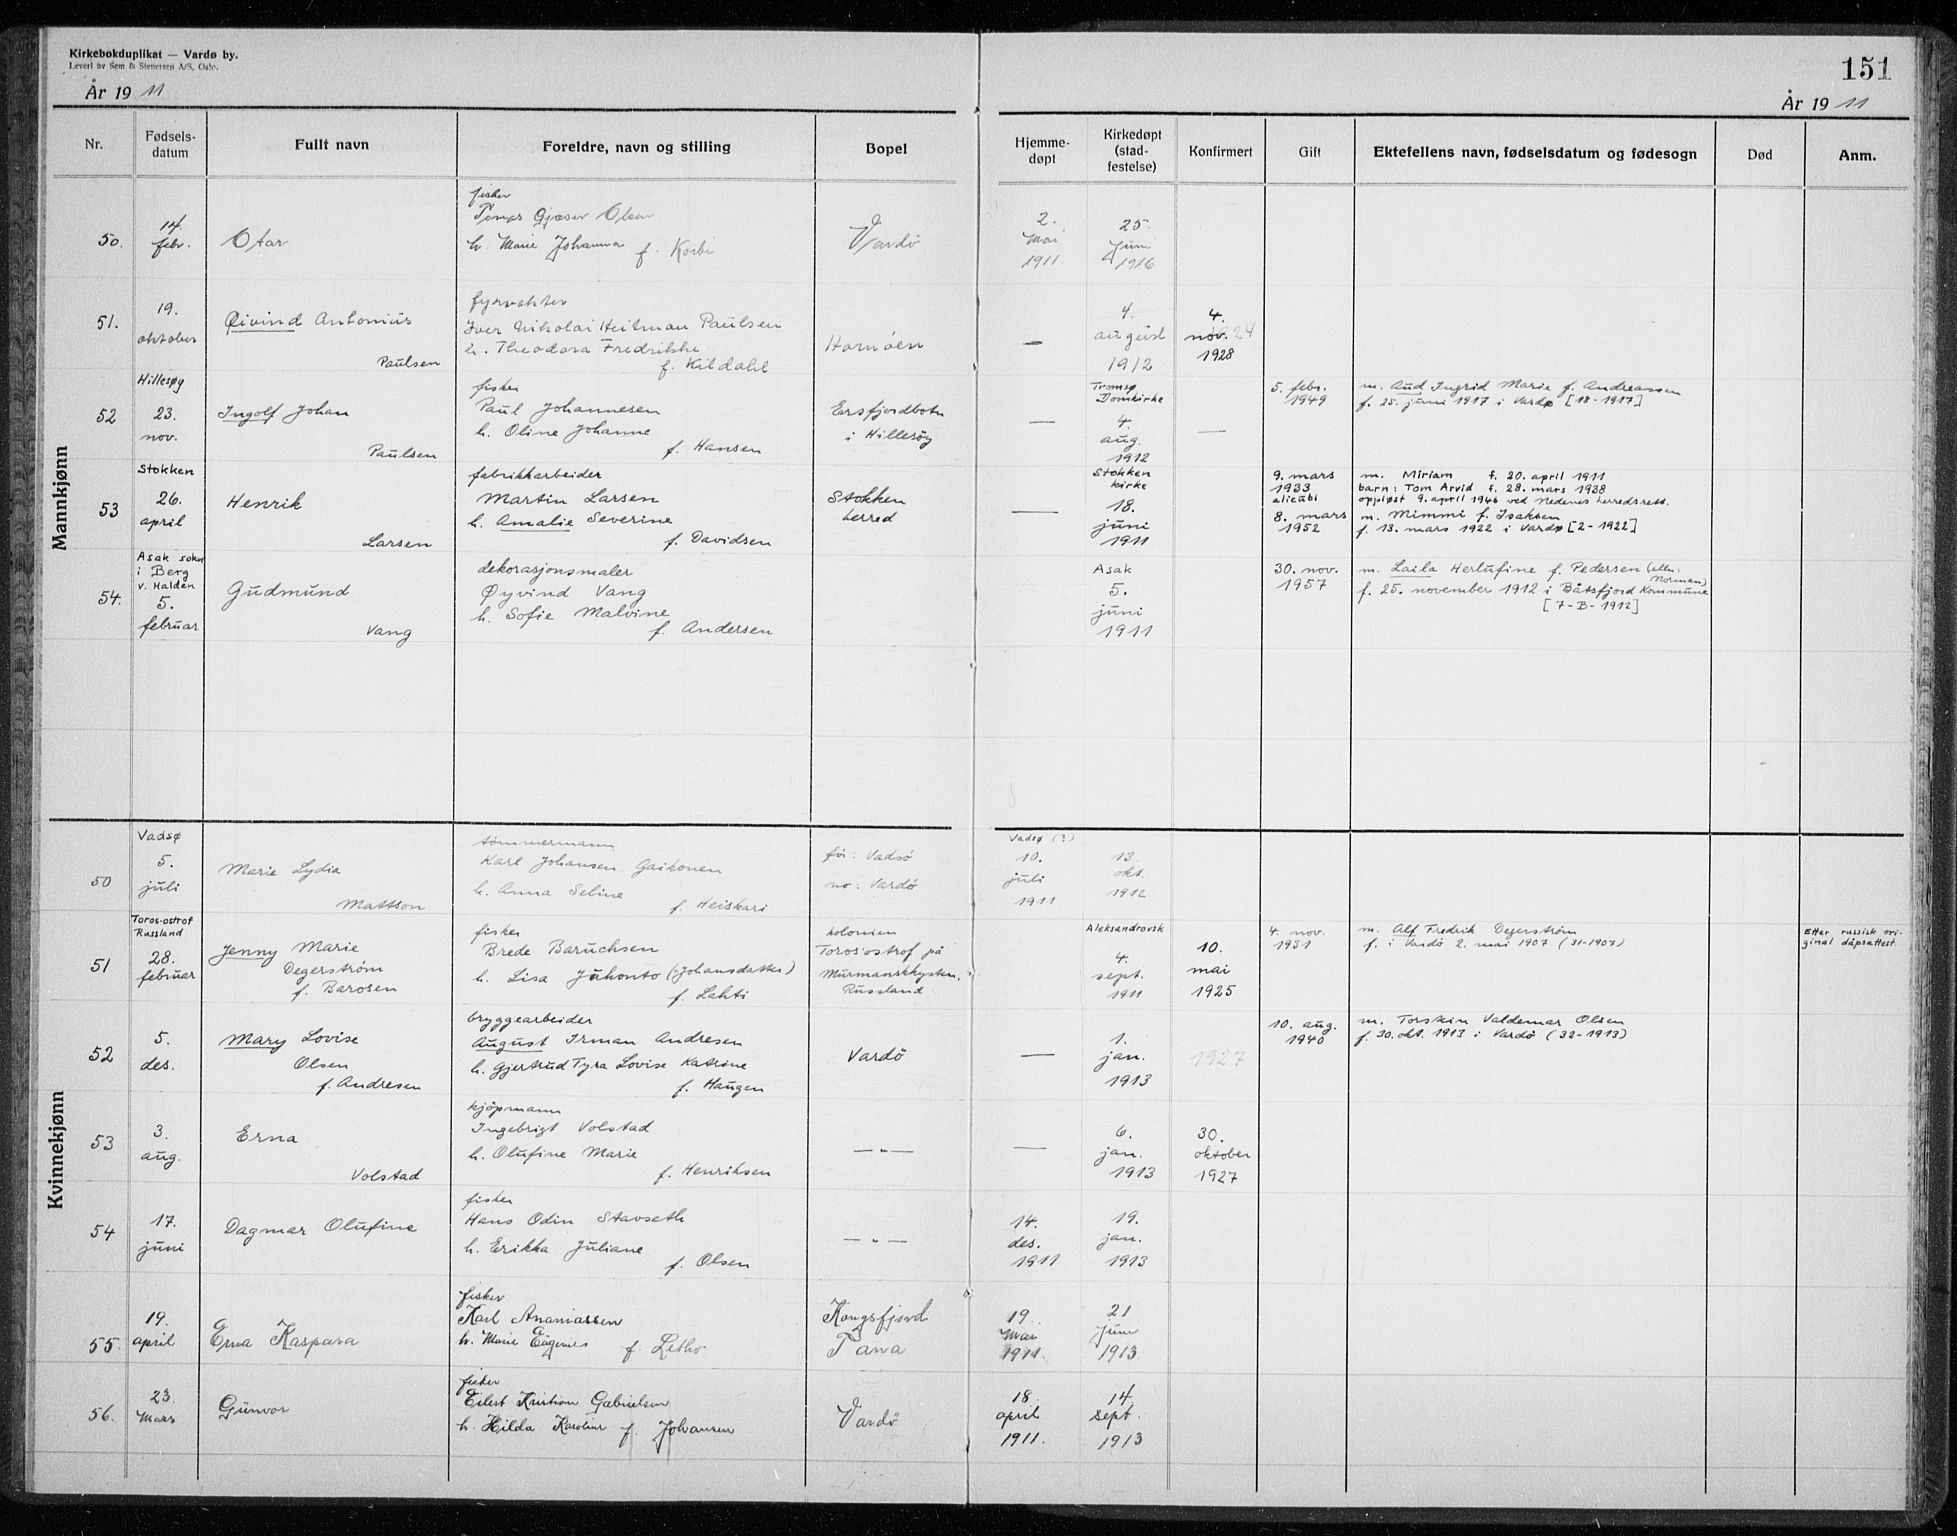 Kirkebokduplikat — Vardø by.
Levert av Sem & Stenersen A/S, Oslo.
151
År 19 11
År 19 11
Nr.
Fødsels-
datum
Fullt navn
Foreldre, navn og stilling
Bopel
Hjemme-
døpt
Kirkedøpt
(stad-
festelse)
Konfirmert
Gift
Ektefellens navn, fødselsdatum og fødesogn
Død
Anm.
Mannkjønn
50.
14.
febr.
Otar
fisker
Tomas Gjæver Olsen
h. Marie Johanna f. Korbi
Vardö
2.
Mai
1911.
25.
Juni
1916
51.
19.
oktober
Øivind Antonius
Paulsen
fyrvokter
Iver Nikolai Heitman Paulsen
h. Theodora Fredrikke
f. Kildahl
Hornöen
—
4.
august
1912
4.
nov. 1924
1928
52
Hillesøy
23.
nov.
Ingolf Johan
Paulsen
fisker
Paul Johannesen
h. Oline Johanne
f. Hansen
Ersfjordbotn
i Hillesöy
—
Tromsø
Domkirke
4.
aug.
1912
—
5. febr.
1949
m. Aud Ingrid Marie f. Andreassen
f. 25. juni 1917 i Vardø [18-1917]
53
Stokken
26.
april
Henrik
Larsen
fabrikkarbeider
Martin Larsen
h. Amalie Severine
f. Davidsen
Stokken
herred
—
Stokken
kirke
18.
juni
1911
9. mars
1933
alicubi
8. mars
1952
m. Miriam f. 20. april 1911
barn: Tom Arvid f. 28. mars 1938
oppløst 9. april 1946 ved Nedenes herredsrett.
m. Mimmi f. Isaksen
f. 13. mars 1922 i Vardø [2-1922]
54.
Asak sokn
i Berg
v. Halden
5.
februar
Gudmund
Vang
dekorasjonsmaler
Øyvind Vang
h. Sofie Malvine
f. Andersen
Asak
5.
juni
1911
30. nov.
1957
m. Laila Herlufine f. Pedersen (ell.
Norman)
f. 25. november 1912 i Båtsfjord kommune
[7-B-1912]
Kvinnekjønn
50
Vadsø
5.
juli
Marie Lydia
Mattson
tømmermann
Karl Johansen Gaikonen
h. Anna Seline
f. Heiskari
før: Vadsö
no: Vardö
Vadsø (?)
10.
juli
1911
13.
okt.
1912
51
Toros-ostrof
Russland
28.
februar
Jenny Marie
Degerström
f. Barosen
fisker
Brede Baruchsen
h. Lisa Juhonto (Johansdatter)
f. Lahti
kolonien
Toros'ostrof på
Murmanskkysten.
Russland
Aleksandrovsk
4.
sept.
1911
10.
mai
1925
4. nov.
1931
m. Alf Fredrik Degerström
f. i Vardö 2. mai 1907 (31-1907)
Etter russisk ori-
ginal dåpsattest.
52
5.
des.
Mary Lovise
Olsen
f. Andresen
bryggearbeider
August Irman Andresen
h. Gjertrud Tyra Lovise Katrine
f. Haugen
Vardö
—
1.
jan.
1913
1927
10. aug.
1940
m. Torstein Valdemar Olsen
f. 30. okt. 1913 i Vardö (32-1913)
53
3.
aug.
Erna
Volstad
kjöpmann
Ingebrigt Volstad
h. Olufine Marie
f. Henriksen
— „ —
—
6.
jan.
1913
30.
oktober
1927
54
17.
juni
Dagmar Olufine
fisker
Hans Odin Stavseth
h. Erikka Juliane
f. Olsen
— „ —
14.
des.
1911
19.
jan.
1913
55.
19.
april
Erna Kaspara
fisker
Karl Ananiassen
h. Marie Eugenie f. Letho
Kongsfjord
Tana
19.
Mai
1911.
21
Juni
1913
56.
23.
Mars
Gunvor
fisker
Eilert Kristian Gabrielsen
h. Hilda Karoline f. Johansen
Vardö
18.
april
1911.
14.
sept.
1913